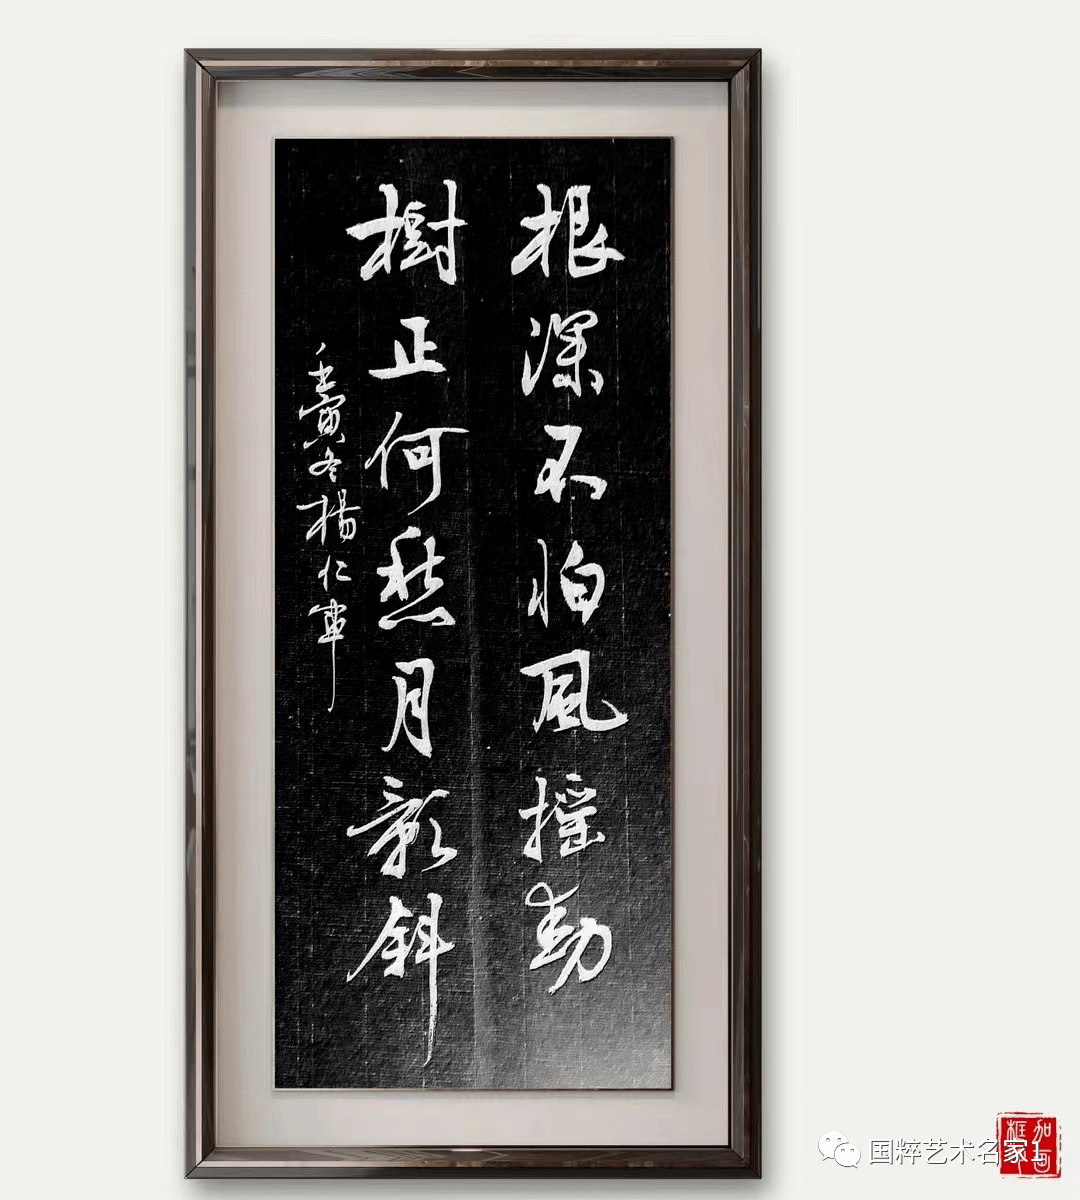 根深不怕風摇動
樹正何愁月影斜
壬寅冬楊仁軍
国粹艺术名家1
加画框